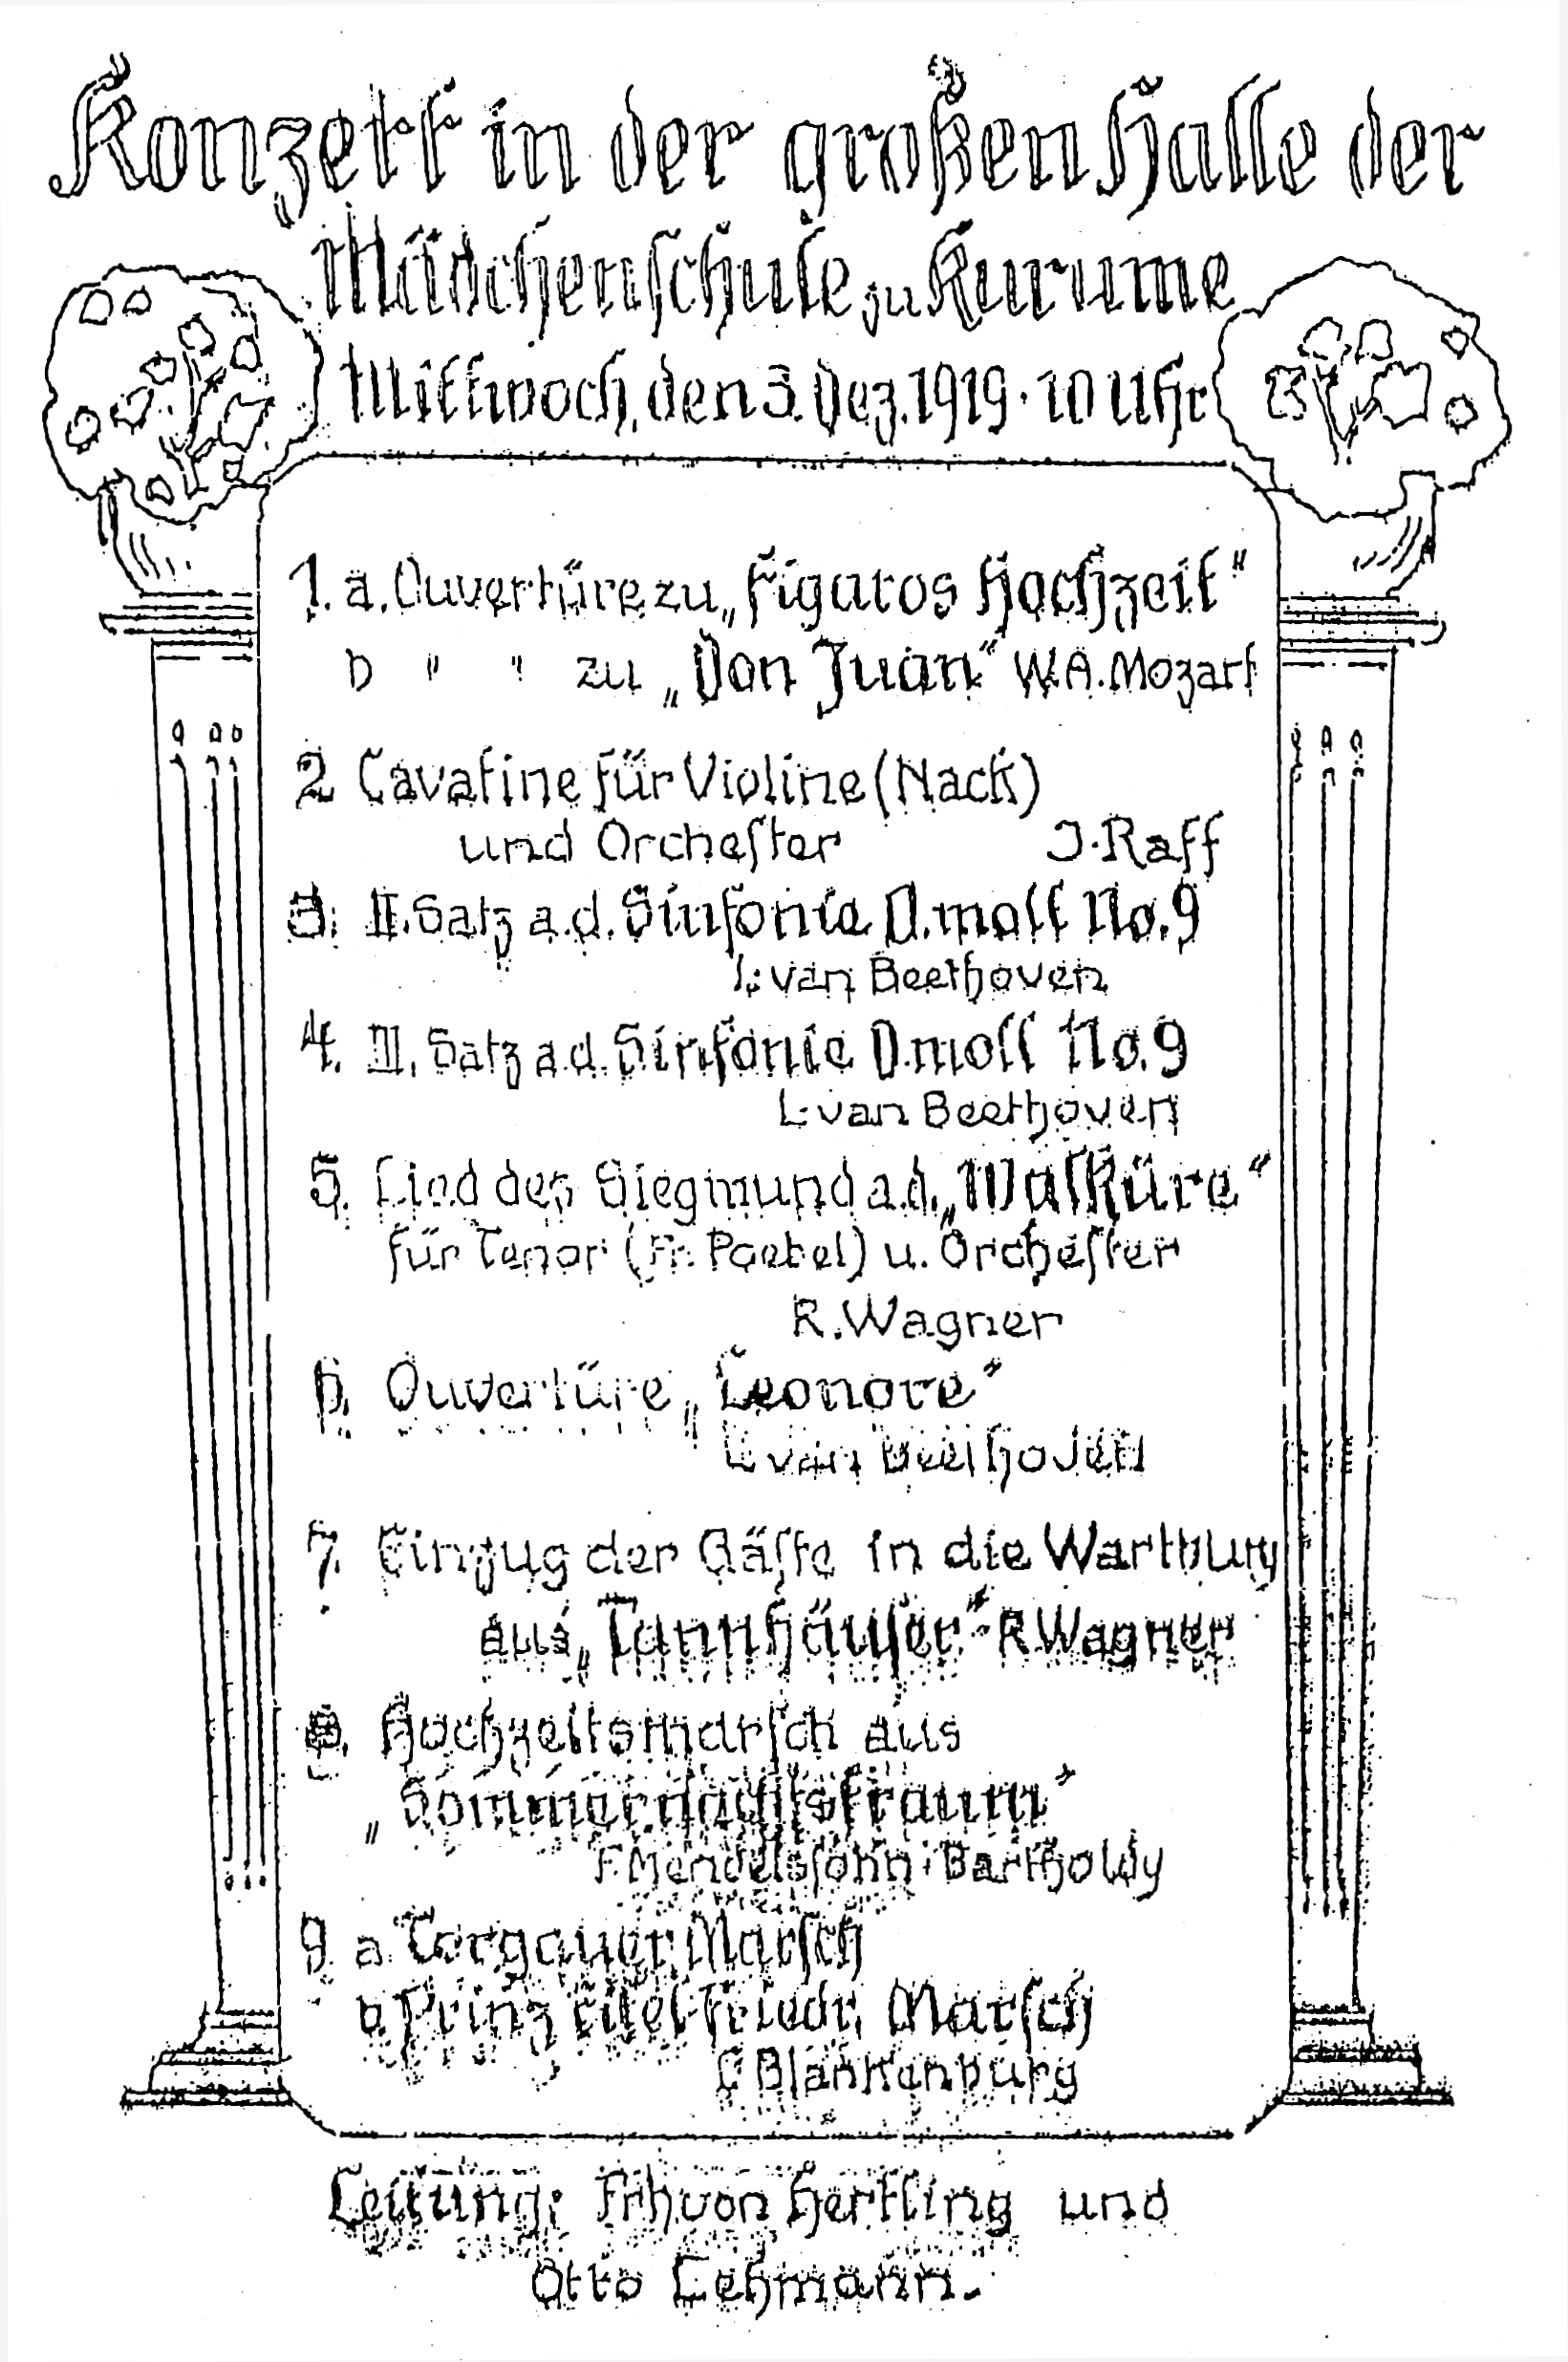 Konzert in der großen Halle der
Mädchenschule zu Kurume
Mittwoch, den 3. Dez. 1919 · 10 Uhr
1. a. Ouvertüre zu „Figaros Hochzeit"
b " " zu „Don Juan" W.A. Mozart
2 Cavatine für Violine (Nack)
und Orchester J. Raff
3. II. Satz a.d. Sinfonie D.moll No. 9
L. van Beethoven
4. III. Satz a.d. Sinfonie D.moll No. 9
L. van Beethoven
5. Lied des Siegmund a.d. „Walküre"
für Tenor (Fr. ) u. Orchester
R. Wagner
6. Ouvertüre „Leonore"
L van Beethoven
7. Einzug der Gäste in die Wartburg
aus „Tannhäuser" R. Wagner
8. Hochzeitsmarsch aus
„Sommernachtstraum"
F. Mendelssohn-Bartholdy
9 a. Torgauer Marsch
b. Prinz Eitel Friedr. Marsch
C Blankenburg
Leitung: Frh. von Hertling und
Otto Lehmann.